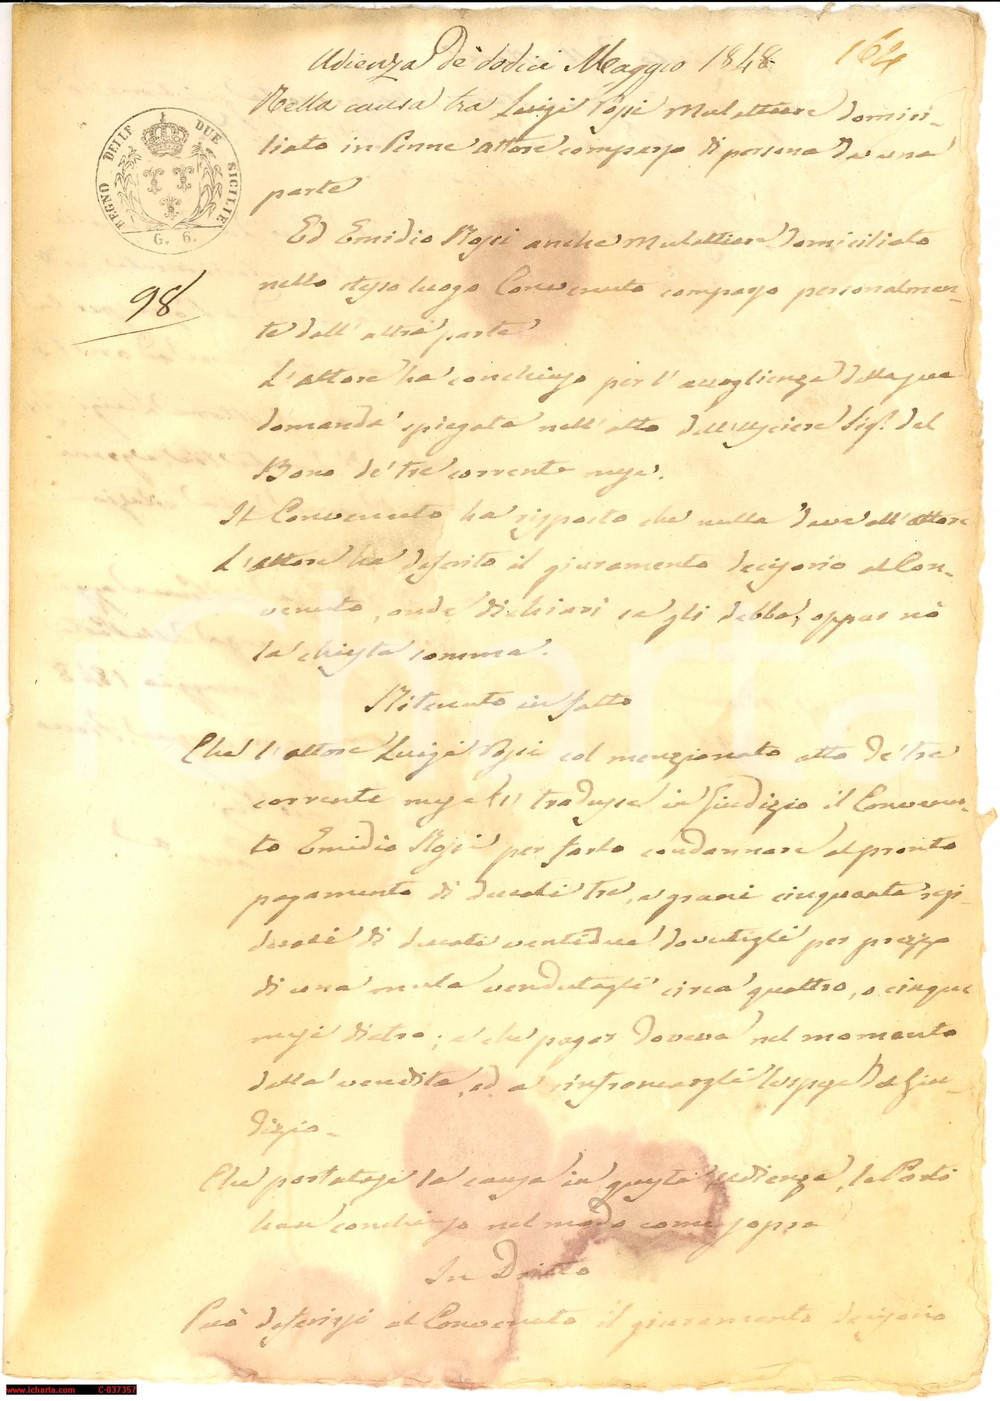 Udienza de' dodici Maggio 1848
164
Nella causa tra Luigi Rossi Mulattiere domici-
liato in Penne attore comparso di persona da una
parte
REGNO DELLE DUE SICILIE
G. 6.
98
Ed Emidio Rossi anche Mulattiere domiciliato
nello stesso luogo Convenuto comparso personalmen-
te dall'altra parte
L'attore ha conchiuso per l'accoglienza della sua
domanda spiegata nell'atto dell'Usciere Sig.r del
Bono de' tre corrente mese.
Il Convenuto ha risposto che nulla deve all'attore
L'attore ha deferito il giuramento decisorio al Con-
venuto, onde dichiari se gli debba, oppur nò
la chiesta somma.
Ritenuto in fatto
Che l'attore Luigi Rossi col menzionato atto de' tre
corrente mese tradusse in Giudizio il Convenu-
to Emidio Rossi per farlo condannare al pronto
pagamento di ducati tre, e grani cinquanta resi-
duali di ducati ventidue dovutigli per prezzo
di una mula vendutagli circa quattro, o cinque
mesi dietro; e che pagar doveva nel momento
della vendita, ed a rinfrancargli le spese del Giu-
dizio.
Che portatasi la causa in questa udienza, le Parti
han conchiuso nel modo come sopra
In Dritto
Può deferirsi al Convenuto il giuramento decisorio
www.icharta.com C-037357